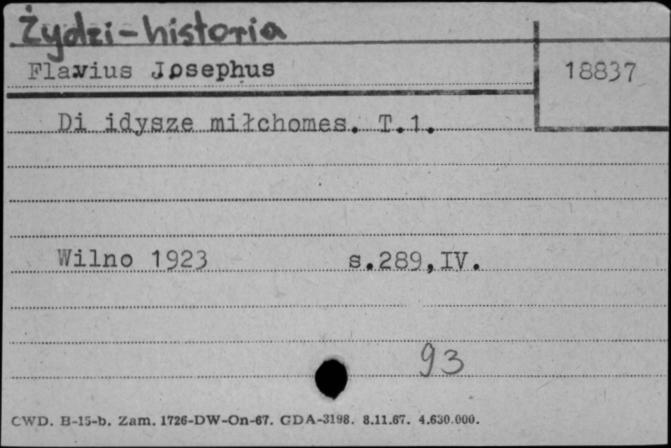 Żydzi-historia
Flavius Josephus
18837
Di idysze miłchomes. T.1.
Wilno 1923 s.289,IV.
93
CWD. B-15-b. Zam. 1726-DW-On-67. GDA-3198. 8.11.67. 4.630.000.